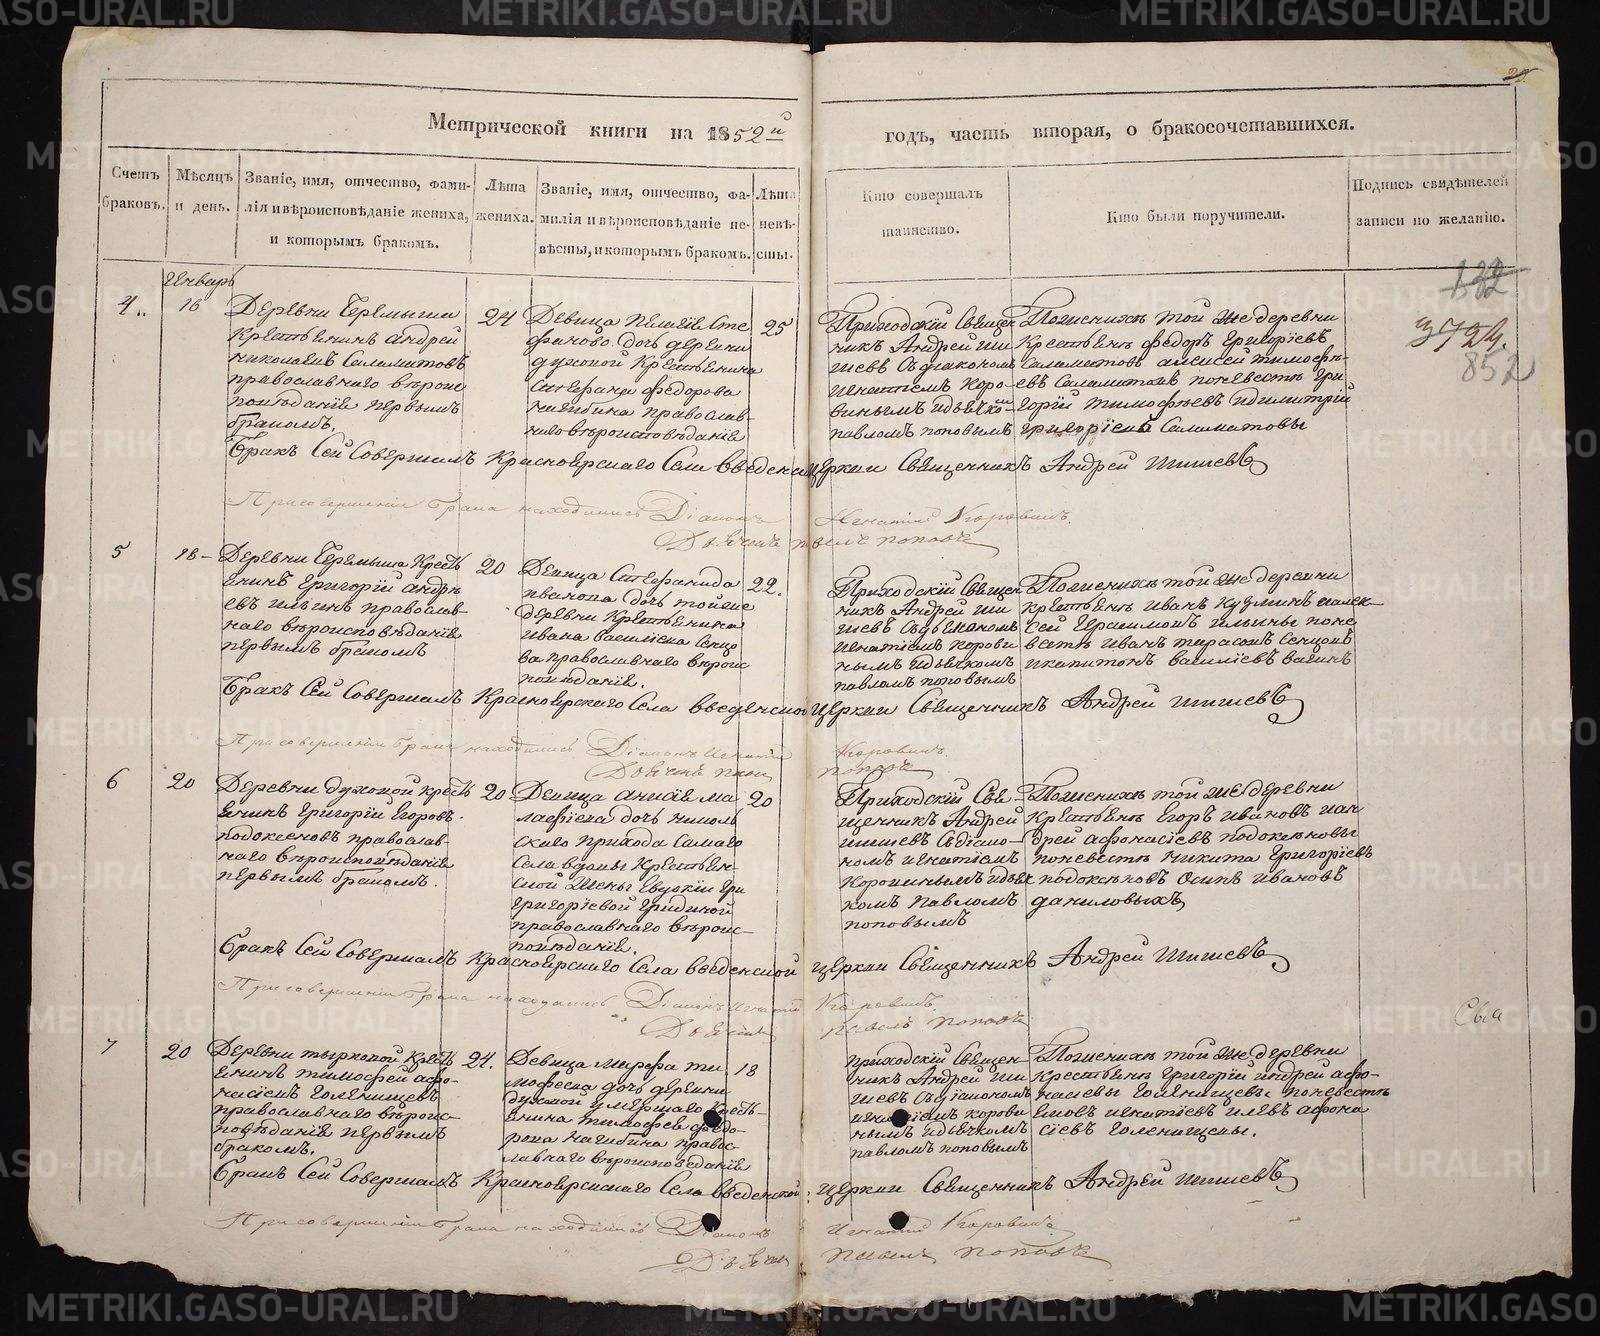 Метрической книги на 1852й годъ, часть вторая, о бракосочетавшихся.
Счетъ браковъ.
Мѣсяцъ и день.
Званіе, имя, отчество, фами-
лія и вѣроисповѣданіе жениха,
и которымъ бракомъ.
Лѣта
жениха.
Званіе, имя, отчество, фа-
милія и вѣроисповѣданіе не-
вѣсты, и которымъ бракомъ.
Лѣта
невѣ-
сты.
Кто совершалъ
таинство.
Кто были поручители.
Подпись свидѣтелей
записи по желанію.
Январь
4
16
Деревни Черемыша
Крестьенинъ Андрей
Николаевъ Саламатовъ
православнаго вѣроис
повѣданіе первымъ
бракомъ.
24
Девица Пелагѣе Сте
фанова дочь деревни
духовой Крестьенина
Стефана Федорова
Нагибина православ-
наго вѣроисповѣданіе
25
Приходскій Священ
никъ Андрей Ши
шевъ съ діакономъ
Игнатіемъ Коро-
винымъ и дьячко
Павломъ Поповымъ
Поженихѣ той же деревни
Крестьенѣ Федоръ Григоріевъ
Саламатовъ Алексей Тимофѣ-
евъ Саламатовъ поневестѣ Гри
горій Тимофѣевъ и Димитрій
Григоріевъ Саламатовы
Бракъ Сей Совершалъ Красноярскаго Села Введенской церкви Священникъ Андрей Шишевъ
При совершеніи брака находились Діаконъ Игнатій Коровинъ.
Дьячекъ Павелъ Поповъ
5
18
Деревни Черемыша Кресть
енинъ Григорій Андре
евъ Ильинъ православ-
наго вѣроисповѣданіе
первымъ бракомъ
20
Девица Стефанида
Иванова дочь той же
деревни Крестьенина
Ивана Василіева Сенцо
ва православнаго вѣроис
повѣданіе.
22.
Приходскій Священ
никъ Андрей Ши
шевъ съ дьякономъ
Игнатіемъ Корови
нымъ и дьячкомъ
Павломъ Поповымъ
Поженихѣ той же деревни
крестьенѣ Иванъ Кузминъ и Алек-
сей Герасимовъ Ильины поне
вестѣ Иванъ Тарасовъ Сенцовъ
и Капитонъ Василіевъ Вагинъ
Бракъ Сей Совершалъ Красноярскаго Села Введенской Церкви Священникъ Андрей Шишевъ
При совершеніи брака находились Діаконъ Игнатій Коровинъ.
Дьячекъ Павелъ Поповъ
6
20
Деревни духовой кресть
енинъ Григорій Егоровъ.
Подоксеновъ православ-
наго вѣроисповѣданіе
первымъ бракомъ.
20
Девица Анисіе Ма
лафіева дочь Николь
скаго прихода самаго
Села вдовы Крестьен-
ской жены Евдокіи Гри
Григоріевой Гридиной
православнаго вѣроис-
повѣданіе.
20
Приходскій Свя-
щенникъ Андрей
Шишевъ съ діако-
номъ Игнатіемъ
Коровинымъ и дьяч
комъ Павломъ
Поповымъ
Поженихѣ той же деревни
Крестьенѣ Егоръ Ивановъ и Ан
дрей Афонасіевъ Подоксеновы
поневестѣ Никита Григоріевъ
Подоксеновъ Осипъ Ивановъ
Даниловыхъ
Бракъ Сей Совершалъ Красноярскаго Села Введенской церкви Священникъ Андрей Шишевъ
При совершеніи брака находились Діаконъ Игнатій Коровинъ.
Дьячекъ Павелъ Поповъ
7
20
Деревни тырковой Кресть
енинъ Тимофей Афо-
насіевъ Голенищевъ
православнаго вѣроис-
повѣданіе первымъ
бракомъ.
24.
Девица Марфа Ти
мофеева дочь деревни
духовой умершаго Кресть-
енина Тимофея Федо-
рова Нагибина правос-
лавнаго вѣроисповеданіе
18
приходскій Священ-
никъ Андрей Ши
шевъ съ діакономъ
Игнатіемъ Корови
нымъ и дьячкомъ
Павломъ Поповымъ
Поженихѣ той же деревни
Крестьенѣ Григорій и Андрей Афо-
насіевы Голенищевы поневестѣ
Игнатіевъ и Левъ Афона
сіевъ Голенищевы.
Бракъ Сей Совершалъ Красноярскаго Села Введенской церкви Священникъ Андрей Шишевъ
При совершеніи брака находились Діаконъ Игнатій Коровинъ
Дьячекъ Павелъ Поповъ
852
METRIKI.GASO-URAL.RU